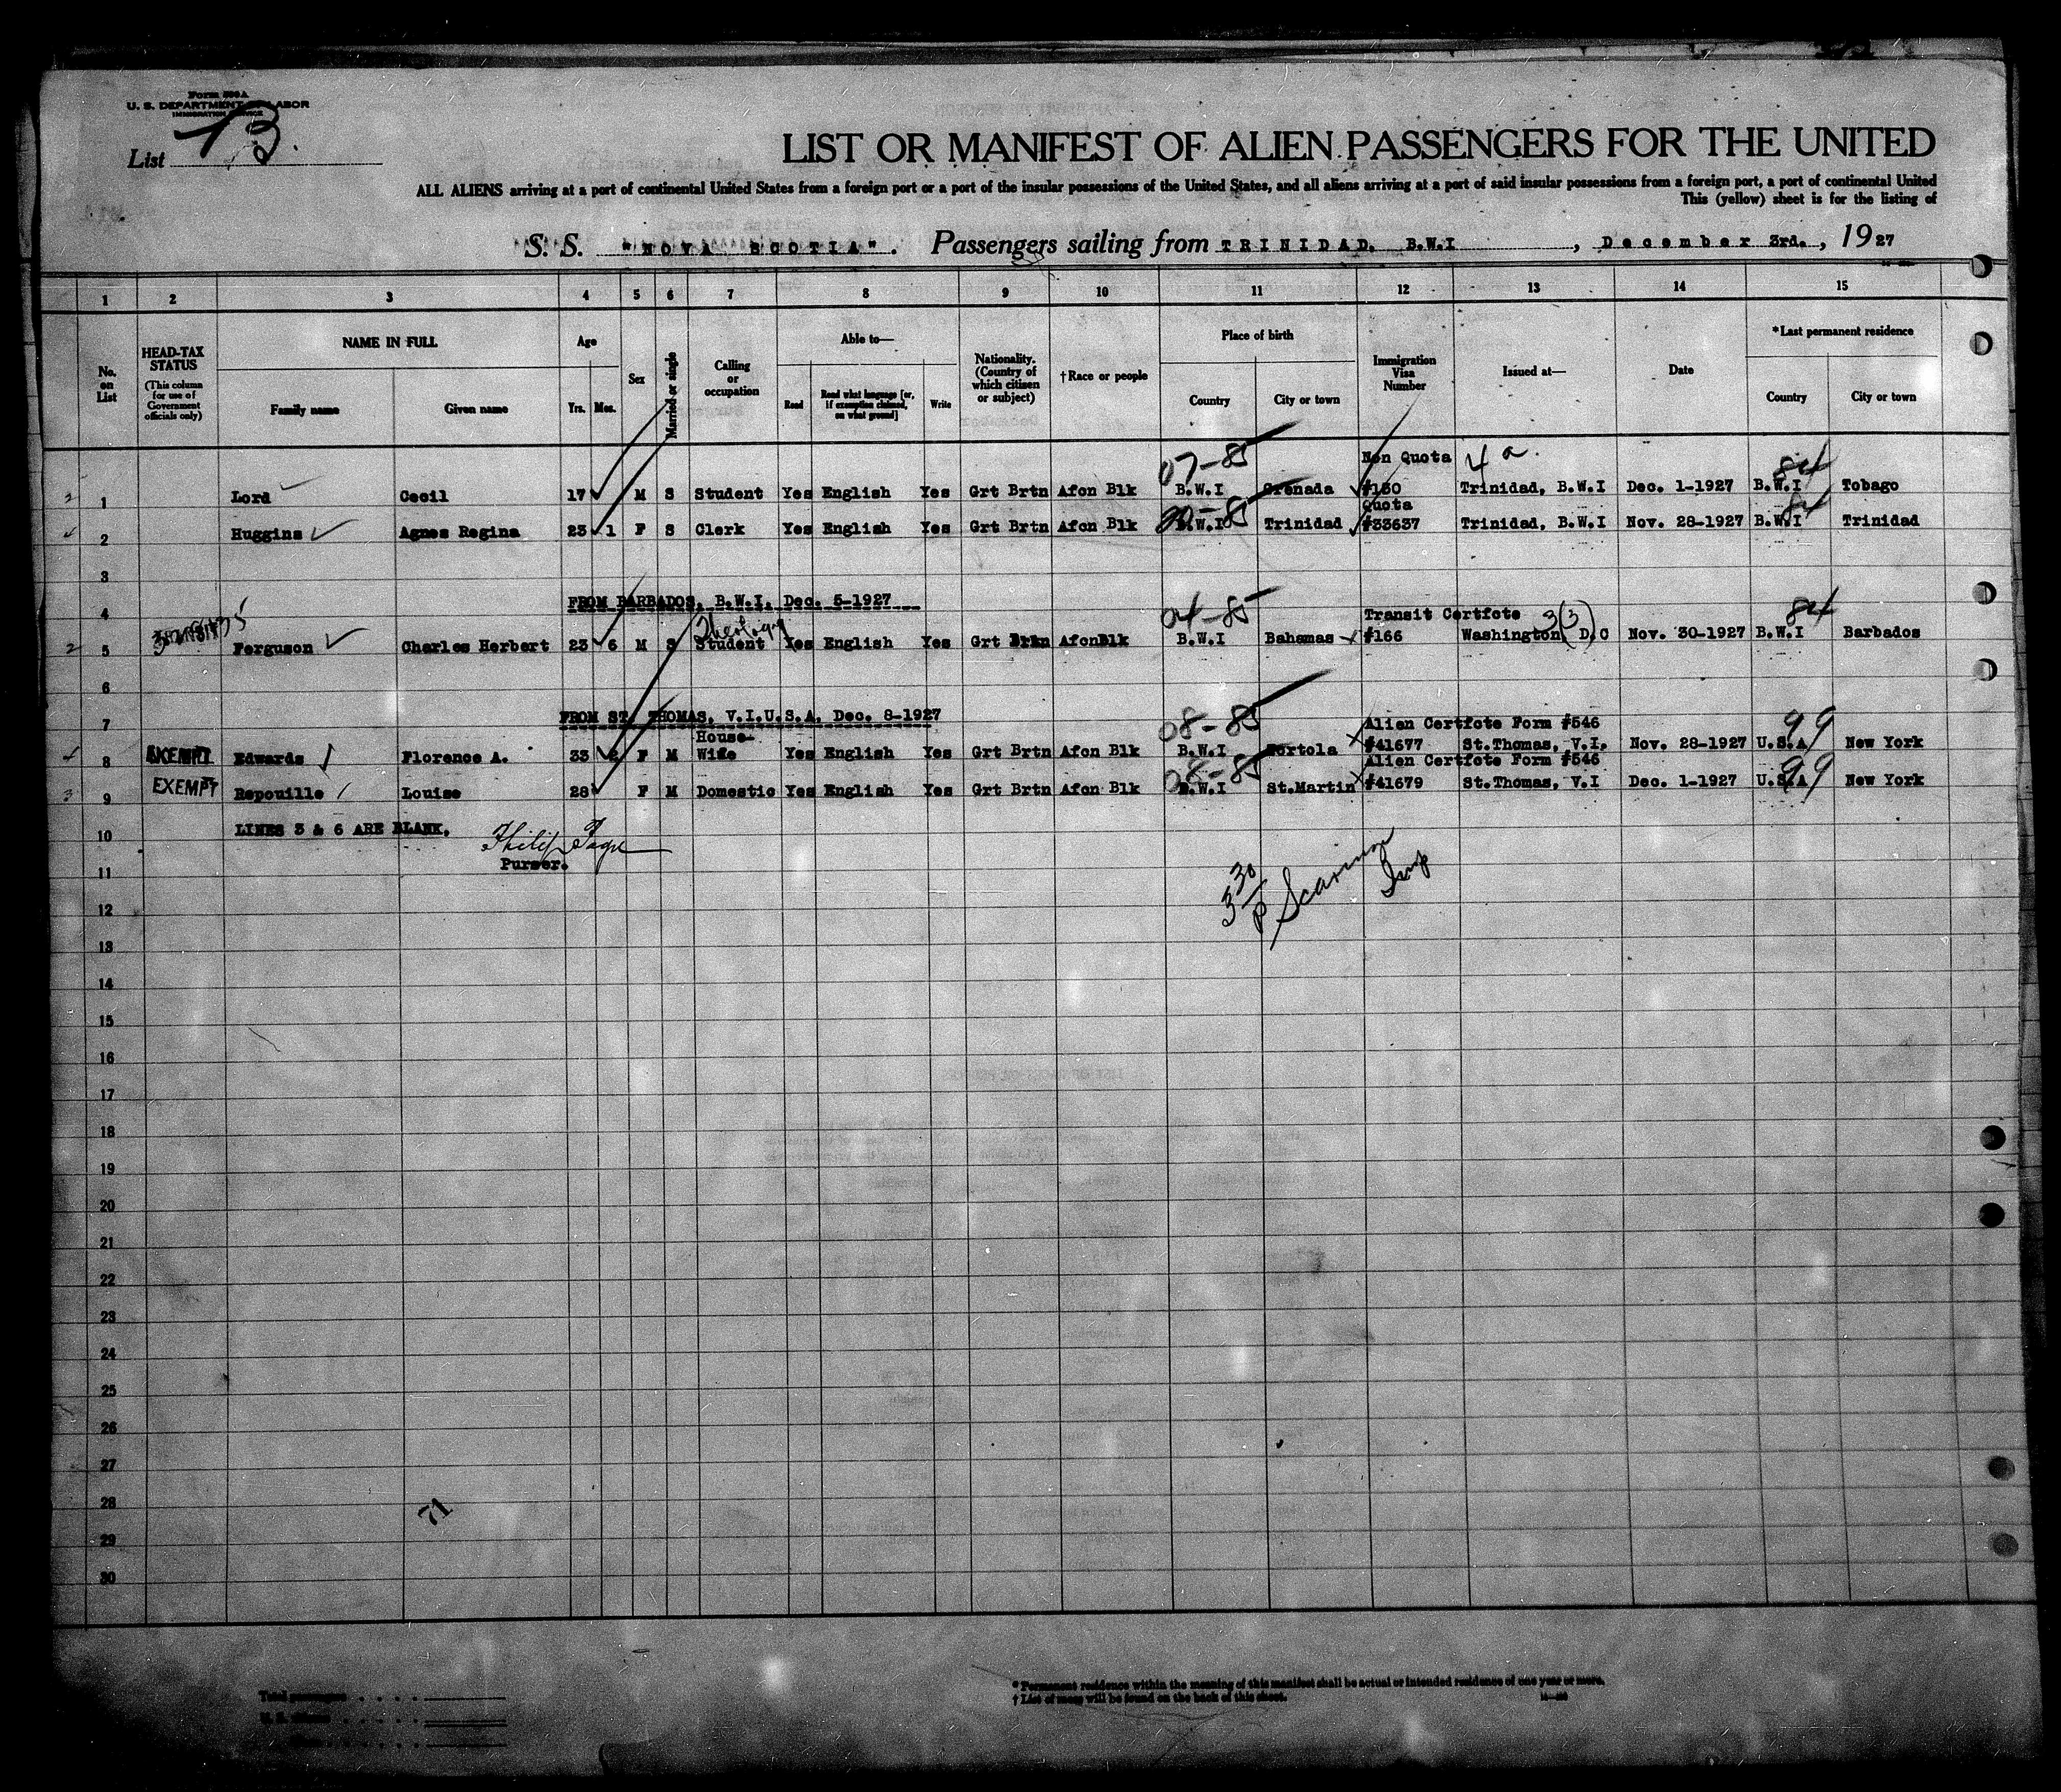 Form 500 A
U. S. DEPARTMENT OF LABOR
IMMIGRATION SERVICE
List 13.
LIST OR MANIFEST OF ALIEN PASSENGERS FOR THE UNITED
ALL ALIENS arriving at a port of continental United States from a foreign port or a port of the insular possessions of the United States, and all aliens arriving at a port of said insular possessions from a foreign port, a port of continental United
This (yellow) sheet is for the listing of
S. S. "NOVA SCOTIA". Passengers sailing from TRINIDAD, B.W.I , December 3rd. , 1927
1 2 3 4 5 6 7 8 9 10 11 12 13 14 15
No. on List
HEAD-TAX STATUS (This column for use of Government officials only)
NAME IN FULL
Family name Given name
Age
Yrs. Mos.
Sex
Married or single
Calling or occupation
Able to—
Read Read what language [or, if exemption claimed, on what ground] Write
Nationality. (Country of which citizen or subject)
†Race or people
Place of birth
Country City or town
Immigration Visa Number
Issued at—
Date
*Last permanent residence
Country City or town
07-85 Non Quota 4 a. 84
2 1 Lord Cecil 17 M S Student Yes English Yes Grt Brtn Afcn Blk B.W.I Grenada #150 Trinidad, B.W.I Dec. 1-1927 B.W.I Tobago
Quota 84
2 Huggins Agnes Regina 23 1 F S Clerk Yes English Yes Grt Brtn Afcn Blk B.W.I Trinidad #33637 Trinidad, B.W.I Nov. 28-1927 B.W.I Trinidad
3
4 FROM BARBADOS, B.W.I. Dec. 5-1927
04-85 Transit Certfcte 3(3) 84
Theology
2 5 Ferguson Charles Herbert 23 6 M S Student Yes English Yes Grt Brtn Afcn Blk B.W.I Bahamas #166 Washington, D.C Nov. 30-1927 B.W.I Barbados
6
7 FROM ST. THOMAS, V.I.U.S.A. Dec. 8-1927
08-85 Alien Certfcte Form #546 99
House-
8 EXEMPT Edwards Florence A. 33 2 F M Wife Yes English Yes Grt Brtn Afcn Blk B.W.I Tortola #41677 St.Thomas, V.I. Nov. 28-1927 U.S.A New York
08-85 Alien Certfcte Form #546 99
3 9 EXEMPT Repouille Louise 28 F M Domestic Yes English Yes Grt Brtn Afcn Blk B.W.I St.Martin #41679 St.Thomas, V.I Dec. 1-1927 U.S.A New York
10 LINES 3 & 6 ARE BLANK.
Philip Page
Purser.
11
3 30 P Insp
12
13
14
15
16
17
18
19
20
21
22
23
24
25
26
27
28
71
29
30
* Permanent residence within the meaning of this manifest shall be actual or intended residence of one year or more.
† List of races will be found on the back of this sheet.
Total passengers
U. S. citizens